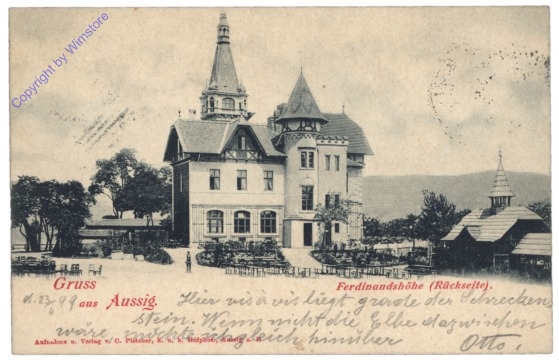 Copyright by Wimstore
Gruss
aus Aussig.
Ferdinandshöhe (Rückseite).
d. 23/99
Hier vis à vis liegt grade der Schrecken
stein. Wenn nicht die Elbe dazwischen
wäre möchte ich gleich hinüber
Otto.
Aufnahme u. Verlag v. C. Pietzner, k. u. k. Hofphot., Aussig a. E.